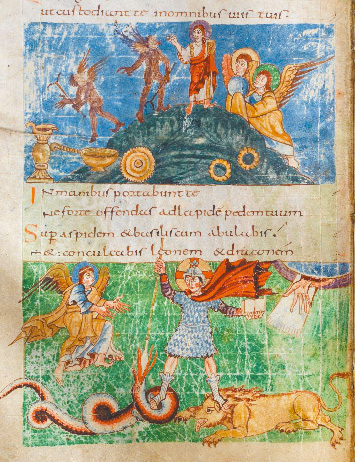 ut custodiant te in omnibus uiis tuis.
IN manibus portabunt te
Ne forte offendas ad lapidē pedem tuum
Sup aspidem & basiliscum ambulabis.
& conculcabis leonem & draconem